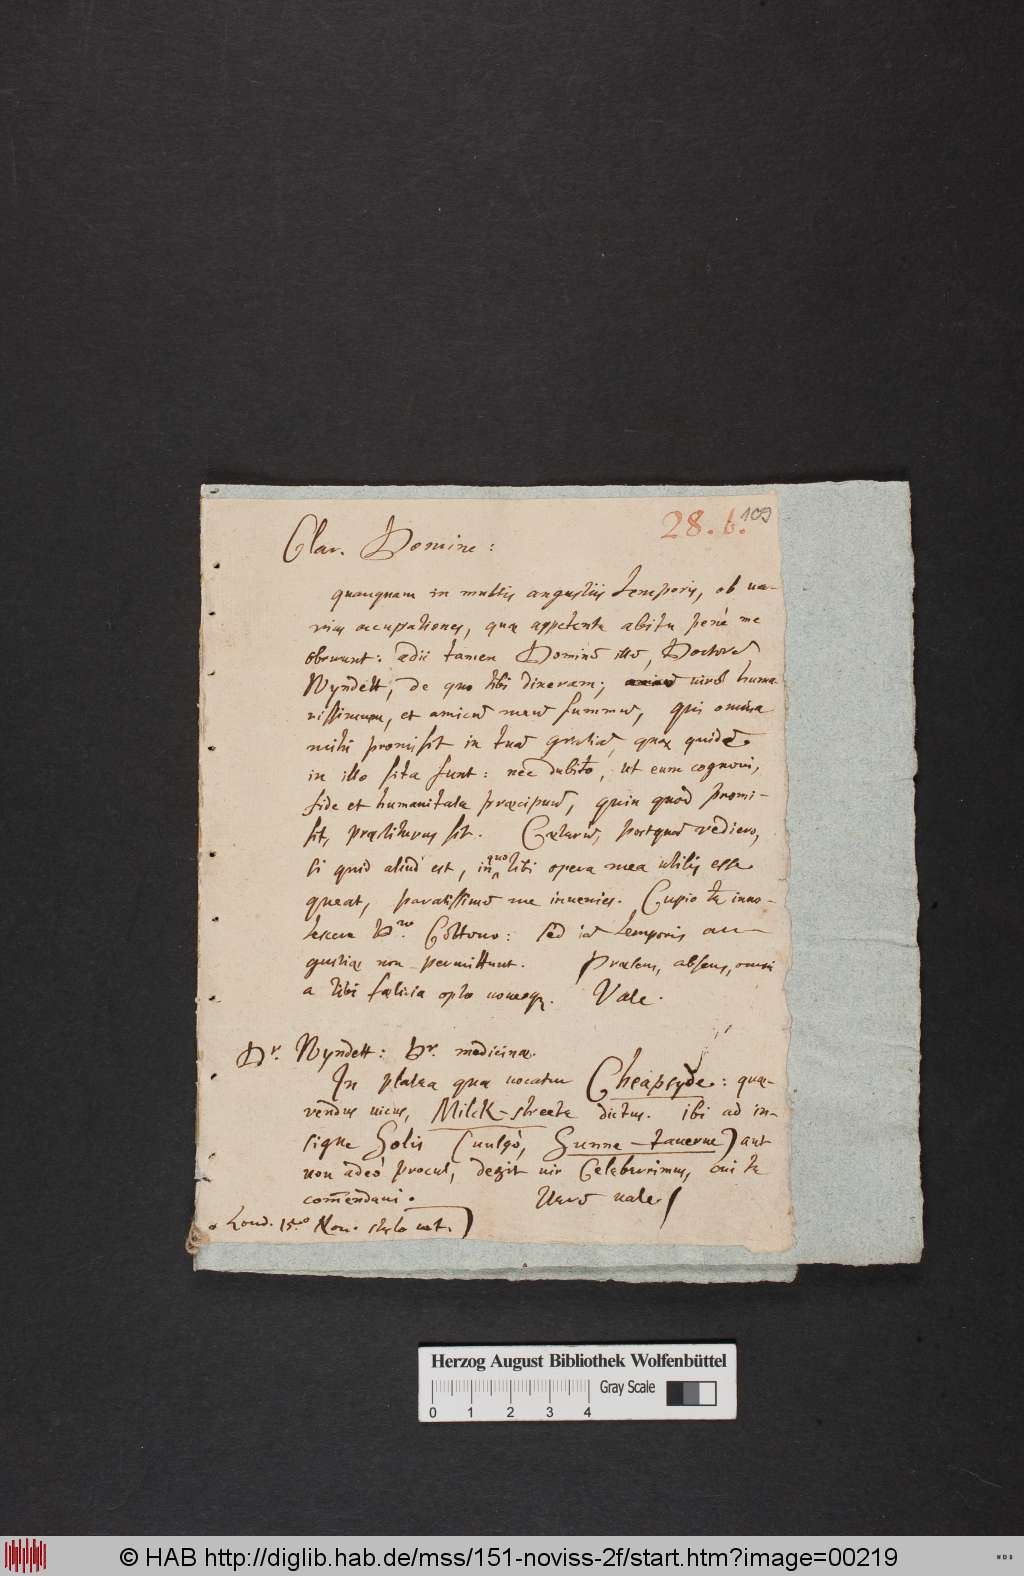 28. b. 109
Clar. Domine:
quanquam in multis angustiis temporis, ob va-
rias occupationes, quae appetente abitu penè me
obruunt: adii tamen Dominū illū, Doctorē
Wyndett, de quo tibi dixeram; virū huma-
nissimum, et amicū meū summū, qui omnia
mihi promisit in tuā gratiā, quae quidē
in illo sita sunt: nec dubito, ut eum cognovi,
fide et humanitate praecipuū, quin quod promi-
sit, praestiturus sit. Caeterū, postquā rediero,
si quid aliud est, in quo tibi opera mea utilis esse
queat, paratissimū me invenies. Cupio te inno-
tescere Dno. Cottono: sed iā temporis an-
gustiae non permittunt. Praesens, absens, omni
a tibi foelicia opto voveoq. Vale.
Dr. Wyndett: Dr. medicinae.
In platea quae vocatur Cheapsyde: quae-
rendus vicus, Milck-streete dictus. ibi ad in-
signe Solis (vulgò, Sunne-taverne) aut
non adeò procul, degit vir Celeberrimus, cui te
com̄endavi. Verū vale
Lond. 15.o Nov. stylo vet.
Herzog August Bibliothek Wolfenbüttel
Gray Scale
0 1 2 3 4
© HAB http://diglib.hab.de/mss/151-noviss-2f/start.htm?image=00219